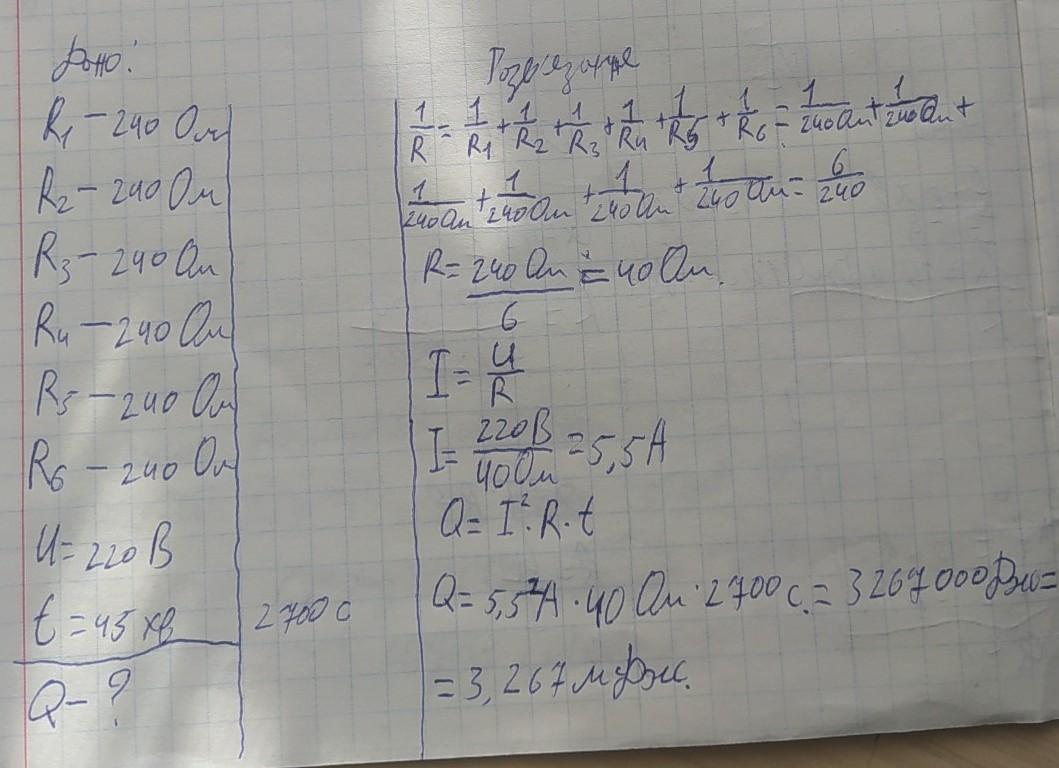 Дано:
R₁ – 240 Ом
R₂ – 240 Ом
R₃ – 240 Ом
R₄ – 240 Ом
R₅ – 240 Ом
R₆ – 240 Ом
U = 220 В
t = 45 хв 2700 с
Q – ?
Розвязання
1/R = 1/R₁ + 1/R₂ + 1/R₃ + 1/R₄ + 1/R₅ + 1/R₆ = 1/240 Ом + 1/240 Ом +
1/240 Ом + 1/240 Ом + 1/240 Ом + 1/240 Ом = 6/240
R = 240 Ом/6 = 40 Ом.
I = U/R
I = 220 В/40 Ом = 5,5 А
Q = I² · R · t
Q = 5,5² А · 40 Ом · 2700 с. = 3267000 Дж =
= 3,267 мДж.